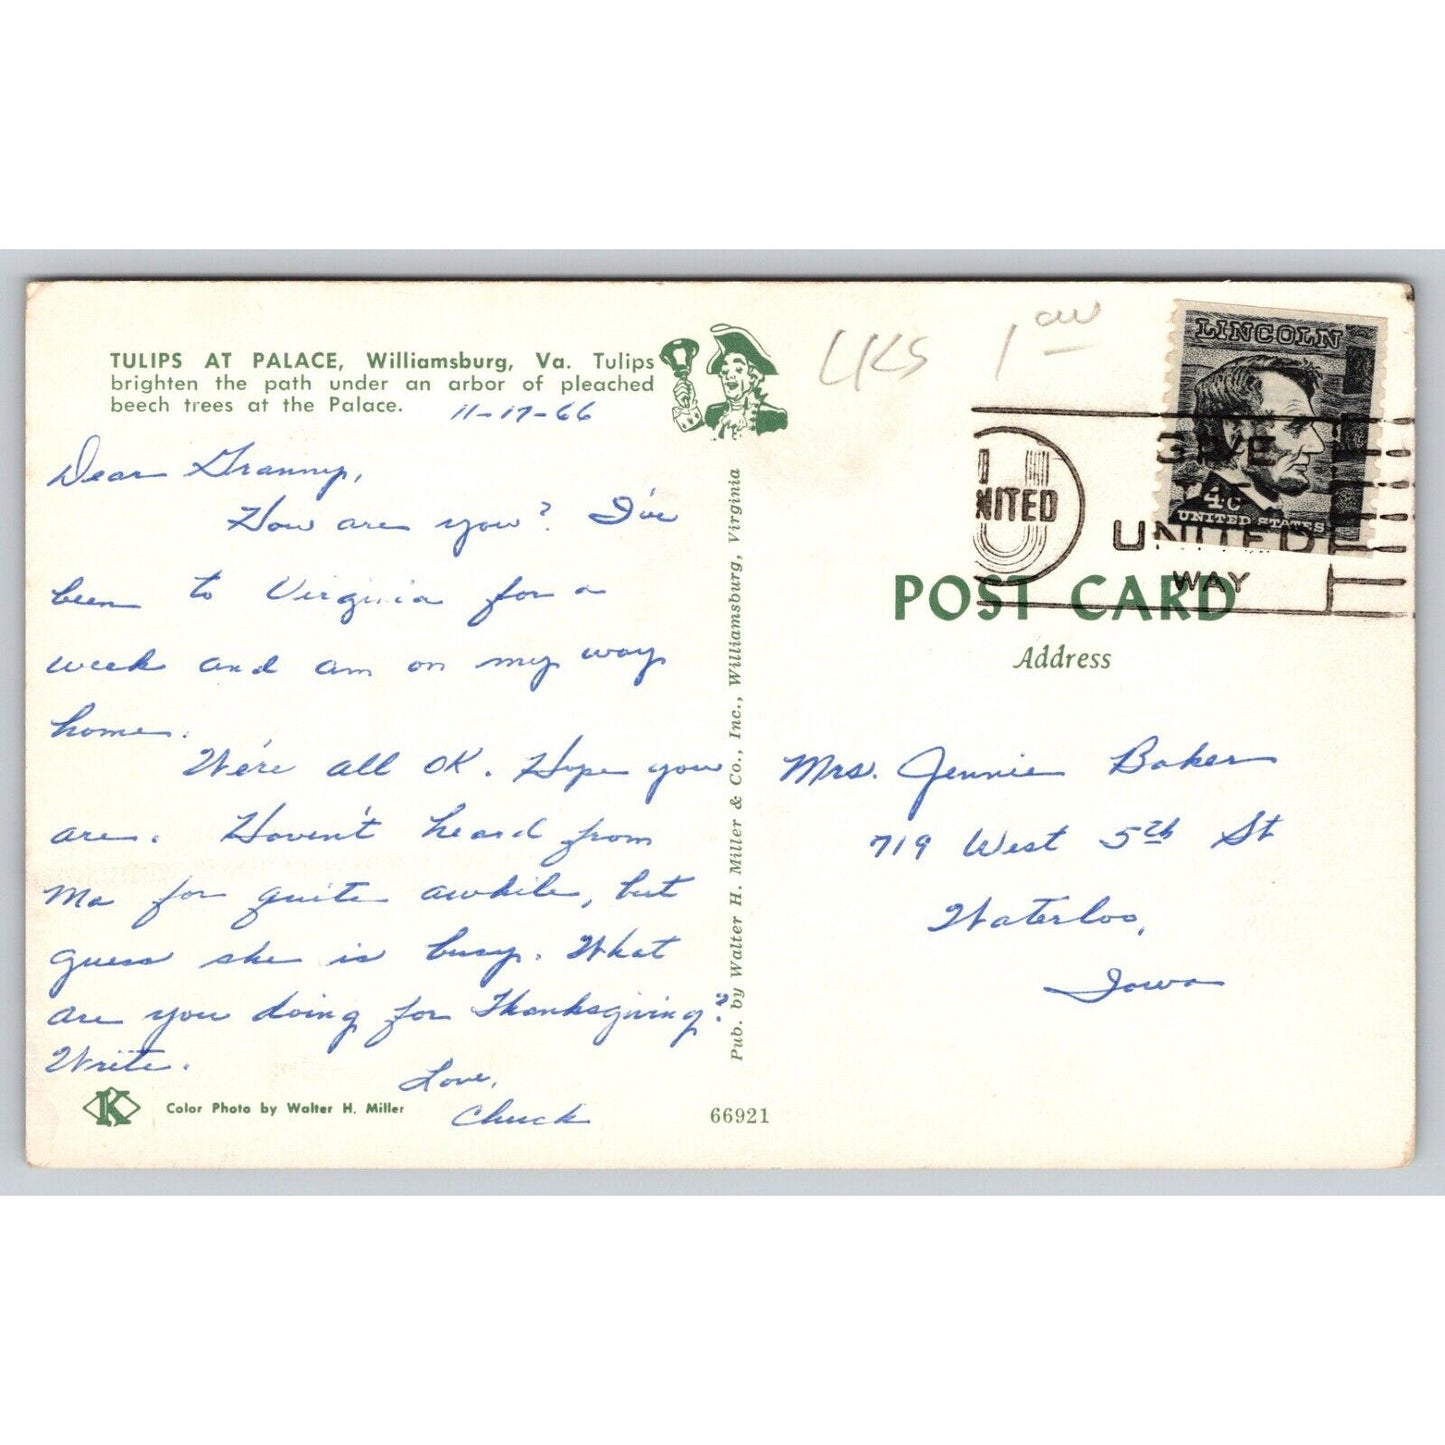 TULIPS AT PALACE, Williamsburg, Va. Tulips
brighten the path under an arbor of pleached
beech trees at the Palace.
11-17-66
Dear Granny,
How are you? I've
been to Virginia for a
week and am on my way
home.
We're all OK. Hope you
are. Haven't heard from
Ma for quite awhile, but
guess she is busy. What
are you doing for Thanksgiving?
Write.
Love,
Chuck
K
Color Photo by Walter H. Miller
66921
Pub. by Walter H. Miller & Co., Inc., Williamsburg, Virginia
LINCOLN
4c
UNITED STATES
NITED
GIVE
UNITED
WAY
POST CARD
Address
Mrs. Jennie Baker
719 West 5th St
Waterloo,
Iowa